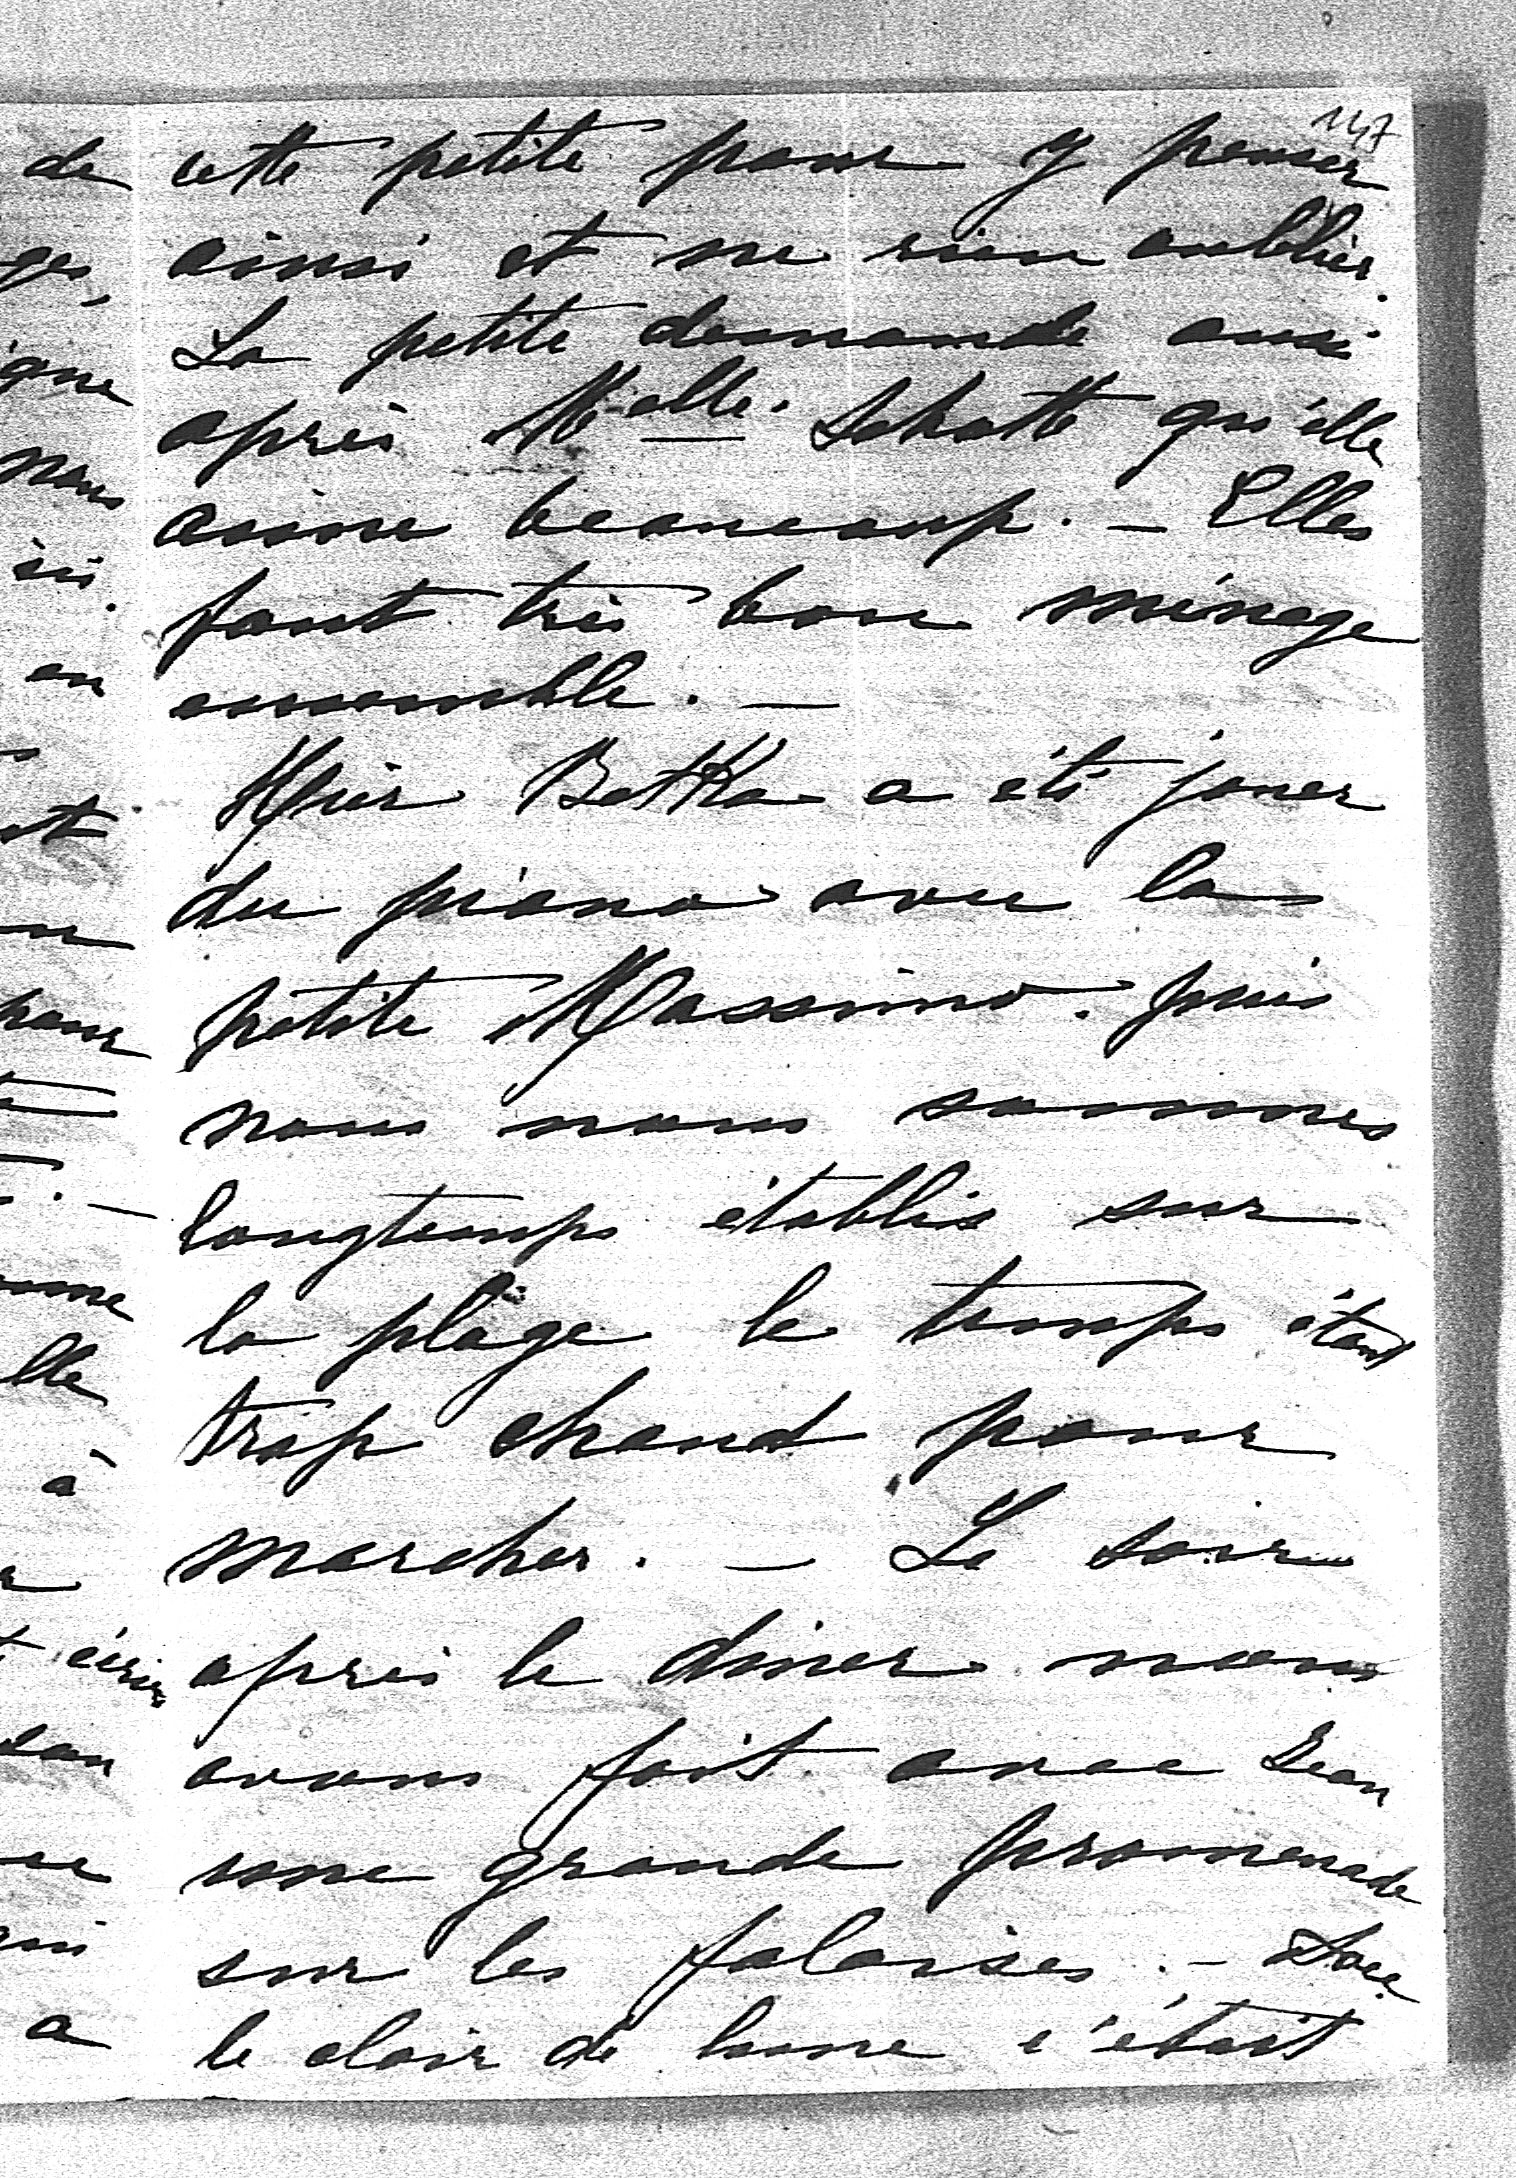 147
de cette petite pour y penser
ainsi et ne rien oublier.
La petite demande aussi
après Melle. Schott qu'elle
aime beaucoup. — Elles
font très bon ménage
ensemble. —
Hier Bettka a été jouer
du piano avec la
petite Massimo. puis
nous nous sommes
longtemps établis sur
la plage le temps étant
trop chaud pour
marcher. — Le soir
après le diner nous
avons fait avec Jean
une grande promenade
sur les falaises. —
le clair de lune c'était